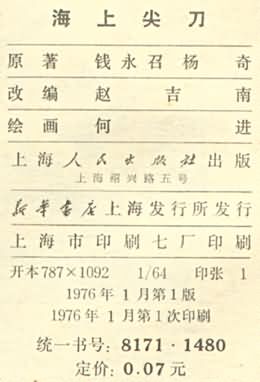 海上尖刀
原著 钱永召 杨奇
改编 赵吉南
绘画 何进
上海人民出版社出版
上海绍兴路五号
新华书店上海发行所发行
上海市印刷七厂印刷
开本787×1092 1/64 印张 1
1976年1月第1版
1976年1月第1次印刷
统一书号：8171·1480
定价：0.07元